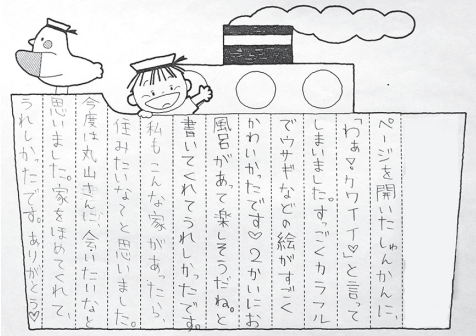 ページを開いたしゅんかんに、
「わぁ♡カワイイ♡」と言って
しまいました。すっごくカラフル
でウサギなどの絵がすごく
かわいかったです♡2かいにお
風呂があって楽しそうだね。と
書いてくれてうれしかったです。
私もこんな家があったら、
住みたいな〜と思いました。
今度は丸山さんに、会いたいなと
思いました。家をほめてくれて、
うれしかったです。ありがとう♡